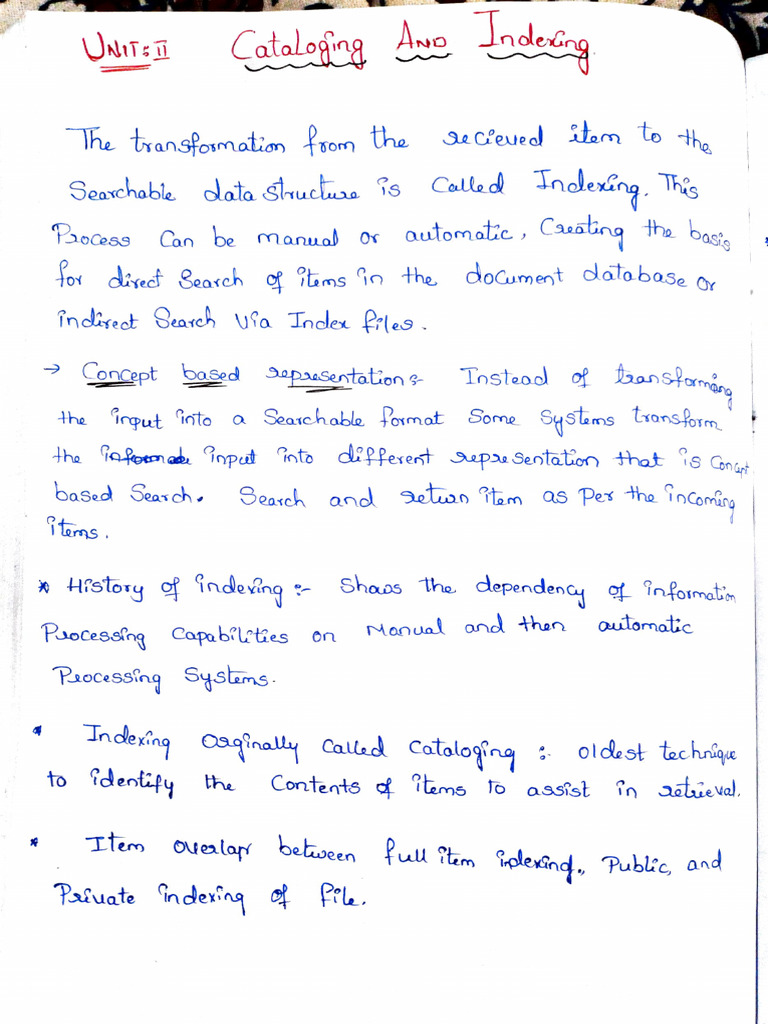 UNIT: II Cataloging AND Indexing.
The transformation from the recieved item to the
Searchable data structure is Called Indexing. This
Process Can be manual or automatic, Creating the basis
for direct Search of items in the document database or
indirect Search Via Index files.
→ Concept based representation:- Instead of transforming
the input into a Searchable format Some Systems transform
the input into different representation that is Concept
based Search. Search and return item as Per the incoming
items.
* History of indexing :- Shows the dependency of information
Processing Capabilities on Manual and then automatic
Processing Systems.
* Indexing Orginally Called Cataloging :- Oldest technique
to identify the Contents of items to assist in retrieval.
* Item overlap between full item indexing., Public, and
Private indexing of file.